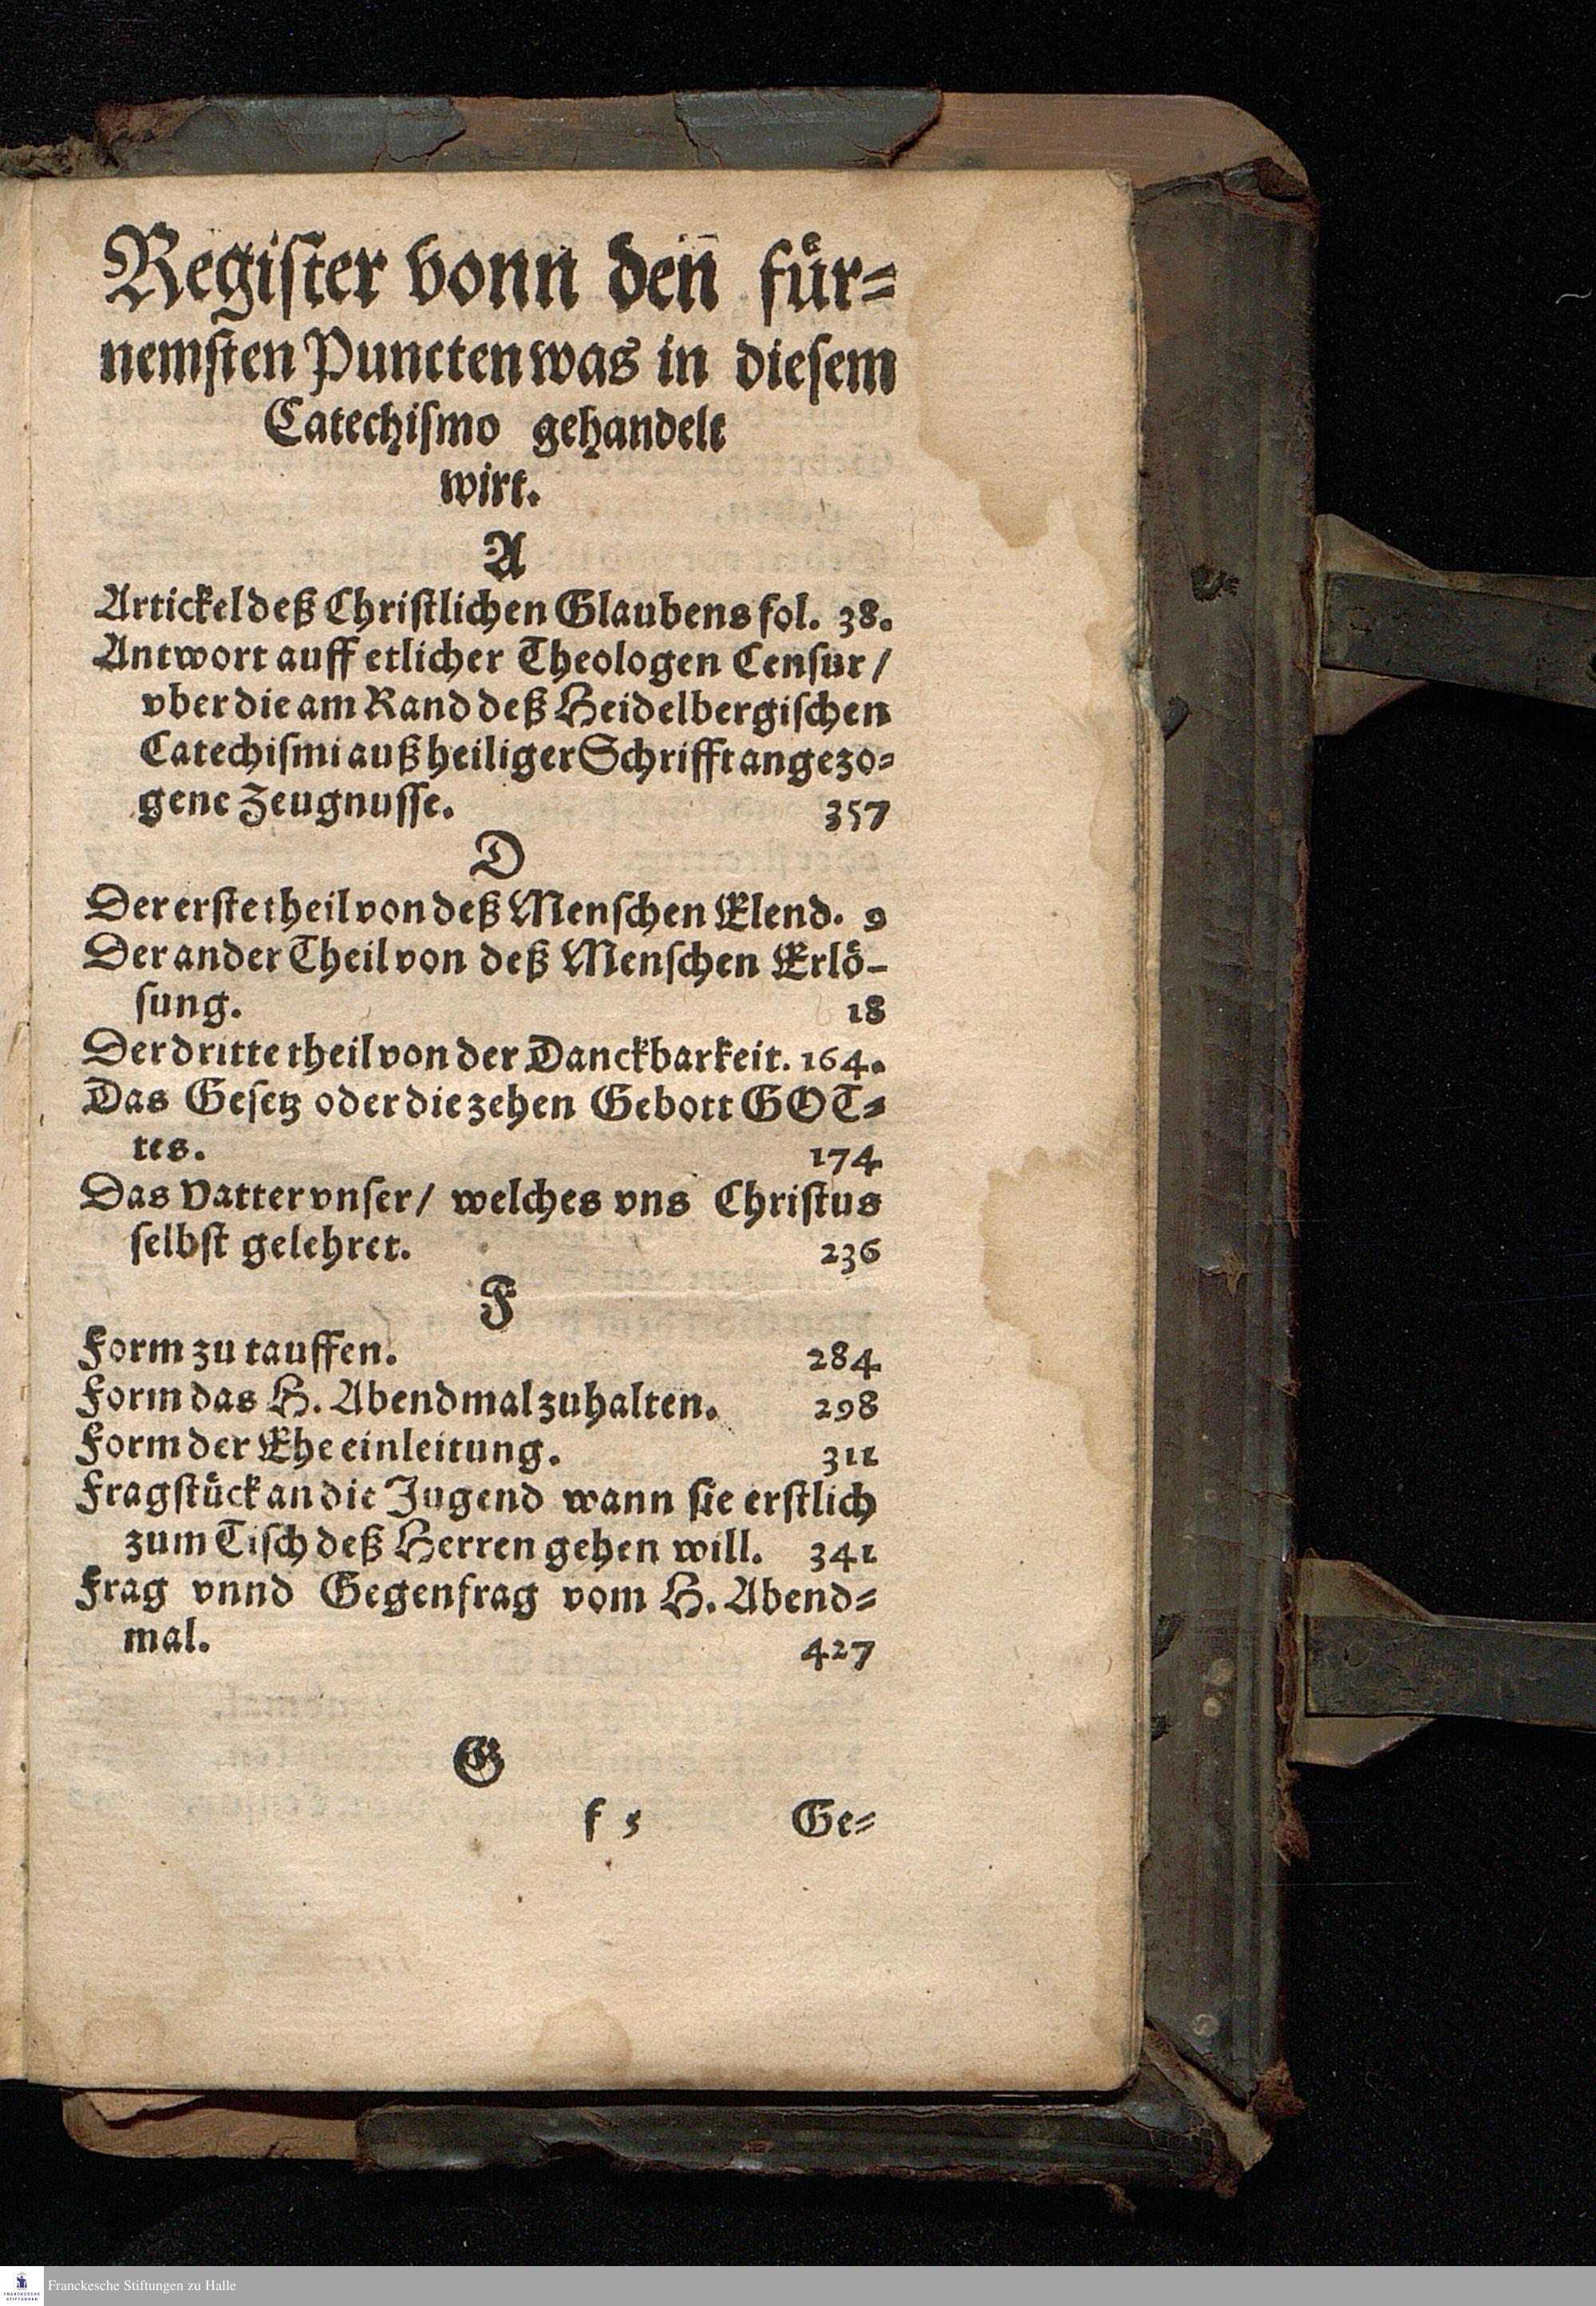 Regiſter vonn den̄ fuͤr⸗
nemſten Puncten was in dieſem
Catechiſmo gehandelt
wirt.
A
Artickel deß Chriſtlichen Glaubens fol. 38.
Antwort auff etlicher Theologen Cenſur /
vber die am Rand deß Heidelbergiſchen
Catechiſmi auß heiliger Schrifft angezo⸗
gene Zeugnuſſe. 357
D
Der erſte theil von deß Menſchen Elend. 9
Der ander Theil von deß Menſchen Erloͤ-
ſung. 18
Der dritte theil von der Danckbarkeit. 164.
Das Geſetz oder die zehen Gebott GOT⸗
tes. 174
Das Vatter vnſer / welches vns Chriſtus
ſelbſt gelehret. 236
F
Form zu tauffen. 284
Form das H. Abendmal zuhalten. 298
Form der Ehe einleitung. 311
Fragſtuͤck an die Jugend wann ſie erſtlich
zum Tiſch deß Herren gehen will. 341
Frag vnnd Gegenfrag vom H. Abend⸗
mal. 427
G
f 5 Ge⸗
FRANCKESCHE STIFTUNGEN
Franckesche Stiftungen zu Halle